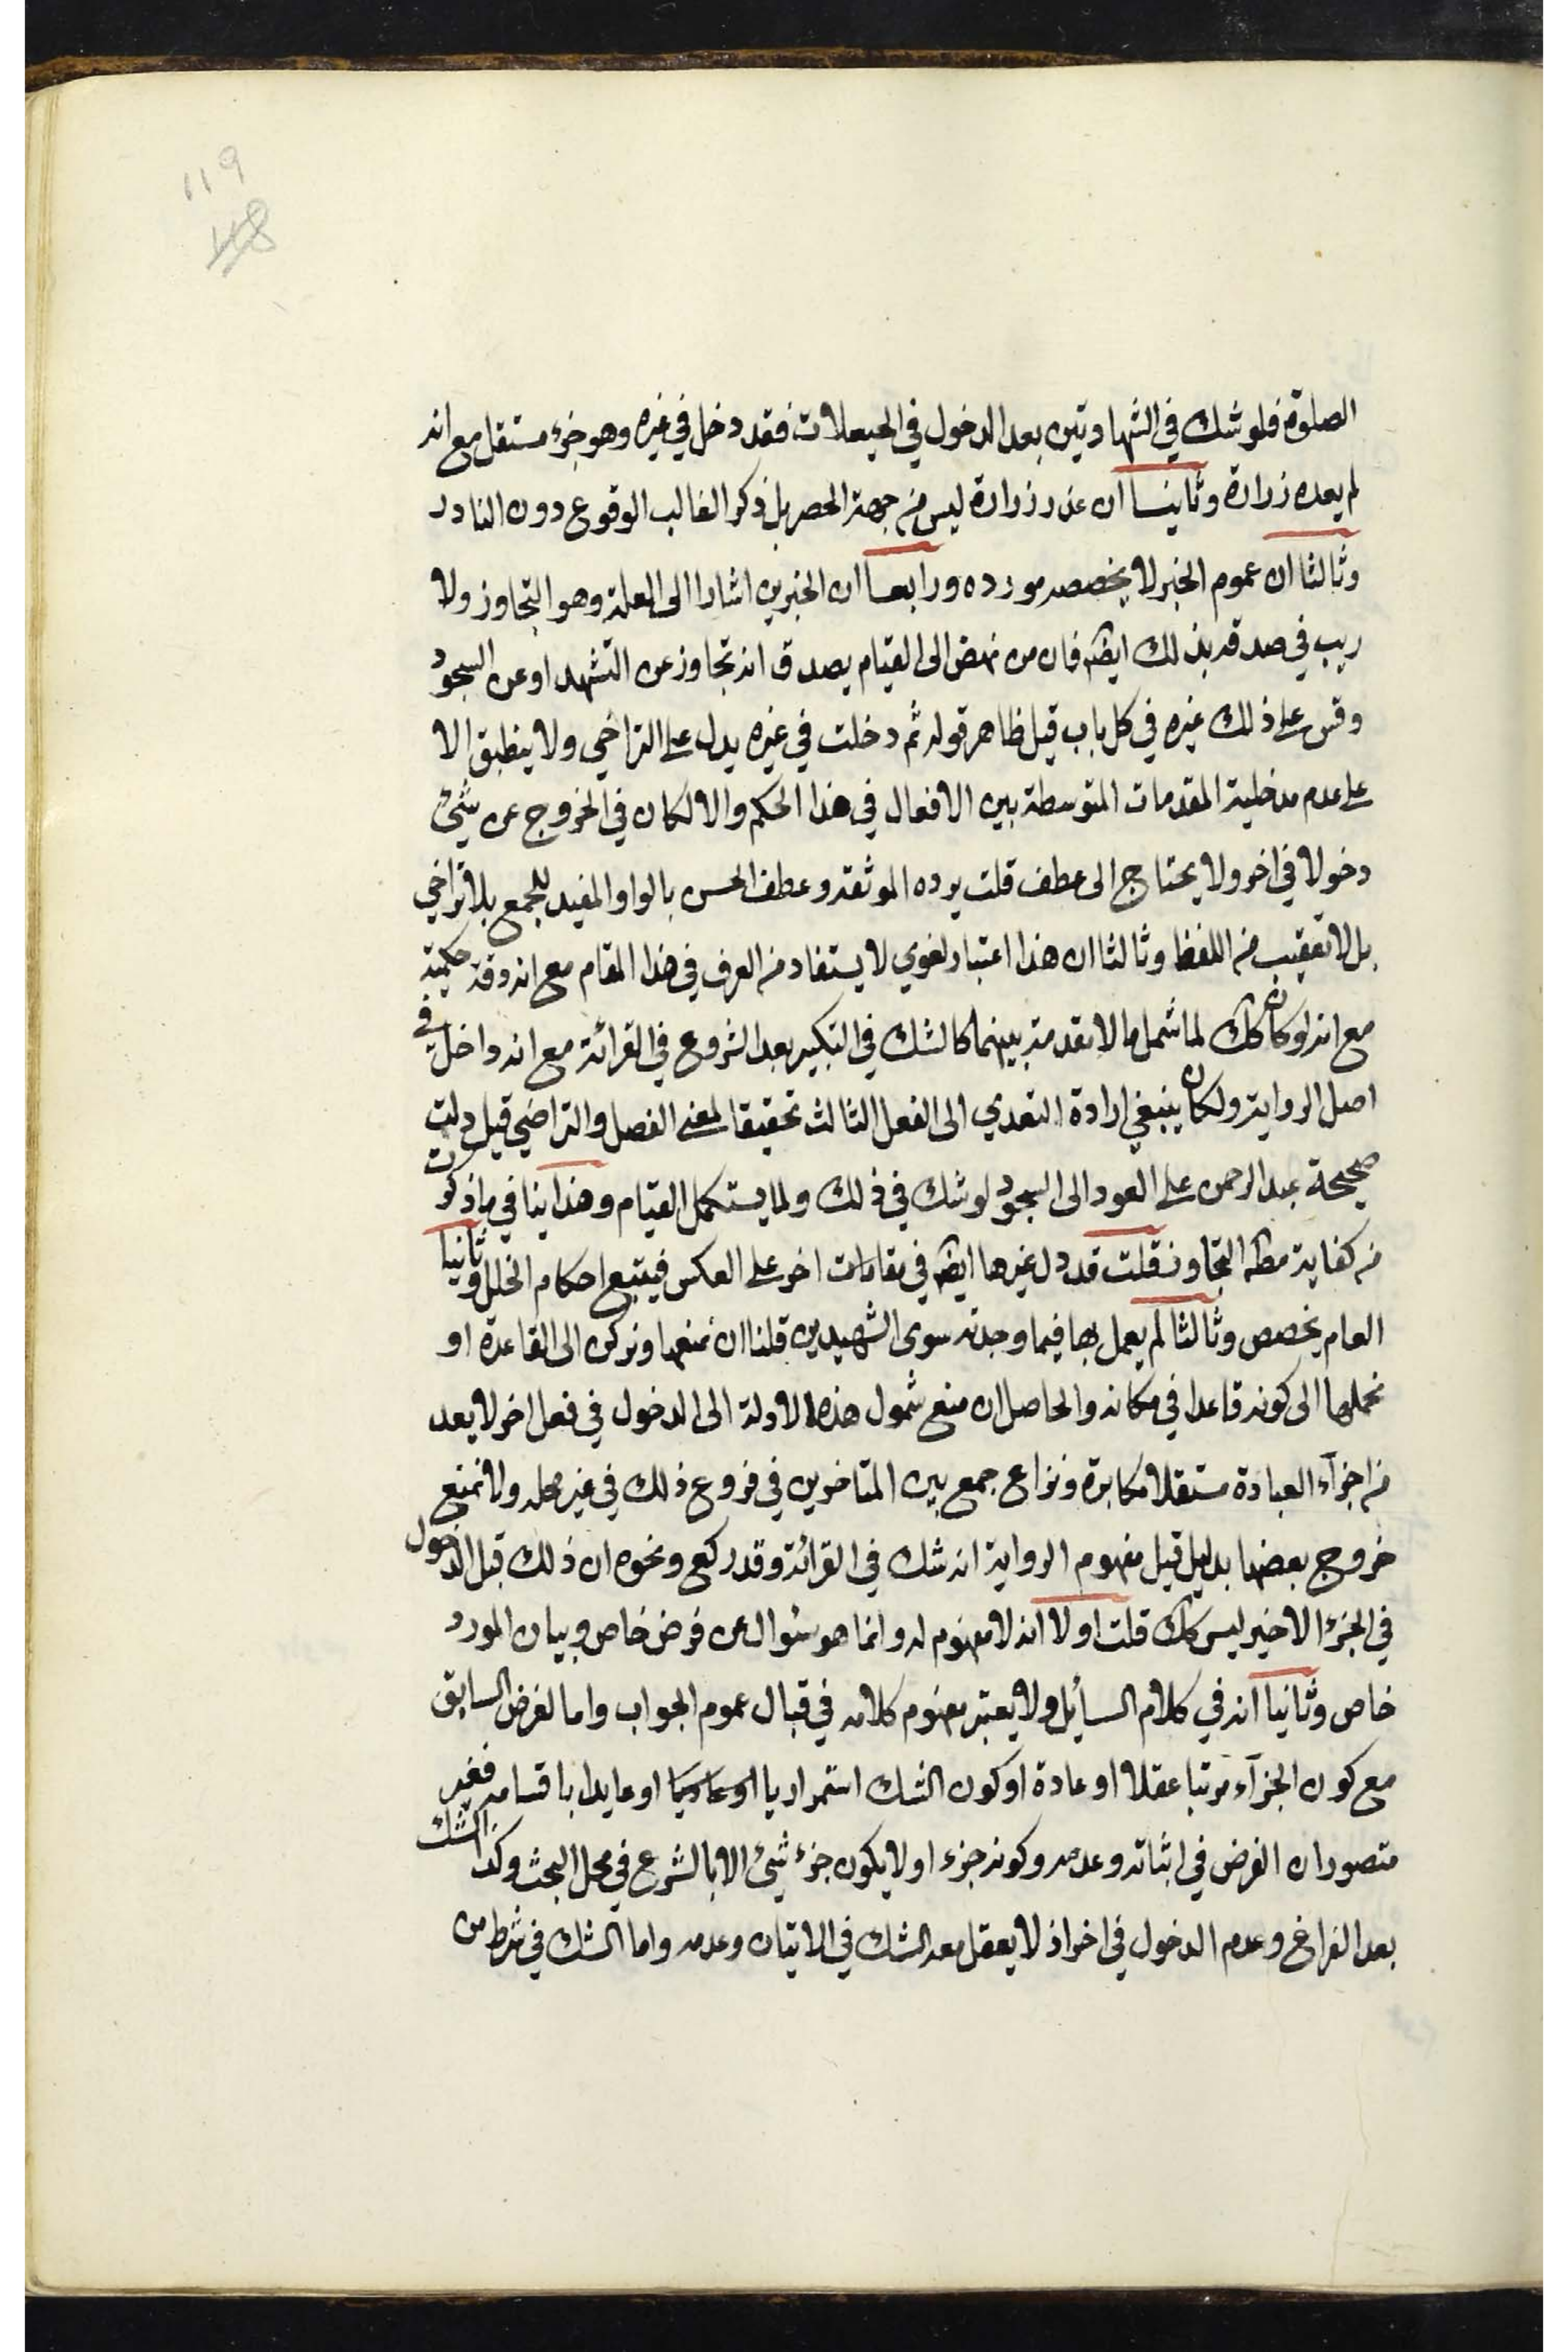 119
118
الصلوة فلو شك في الشهادتين بعد الدخول في الحيعلات فقد دخل في غيره وهو جزء مستقل مع انه
لم يعده زرارة وثانيا ان عد زرارة ليس من جهة الحصر بل ذكر الغالب الوقوع دون النادر
وثالثا ان عموم الخبر لا يخصصه مورده ورابعا ان الخبرين اشارا الى العلة وهو التجاوز ولا
ريب في صدقه بذلك ايضا فان من نهض الى القيام يصدق انه تجاوز عن التشهد او عن السجود
وقس على ذلك غيره في كل باب قيل ظاهر قوله ثم دخلت في غيره يدل على التراخي ولا ينطبق الا
على عدم مدخلية المقدمات المتوسطة بين الافعال في هذا الحكم والا لكان في الخروج عن شئ
دخولا في اخر ولا يحتاج الى عطف قلت يرده الموثقة وعطف الحسن بالواو المفيد للجمع بلا تراخي
بل لا تعقيب من اللفظ وثالثا ان هذا اعتبار لغوي لا يستفاد من العرف في هذا المقام مع انه دقة حكمية
مع انه لو كان كك لما شمل ما لا مقدمة بينهما كالشك في التكبير بعد الشروع في القرائة مع انه داخل في
اصل الرواية ولكان ينبغي ارادة التعدي الى الفعل الثالث تحقيقا لمعنى الفصل والتراضي قيل دلت
صحيحة عبد الرحمن على العود الى السجود لو شك في ذلك ولما يستكمل القيام وهذا ينافي ما ذكرت
من كفاية مطلق التجاوز قلت قد دل غيرها ايضا في مقامات اخر على العكس فيتبع احكام الخلل وثانيا
العام يخصص وثالثا لم يعمل بها فيما وجدته سوى الشهيدين قلنا ان نمنعها ونركن الى القاعدة او
نحملها الى كونه قاعدا في مكانه والحاصل ان منع شمول هذه الادلة الى الدخول في فعل اخر لا يعد
من اجزآء العبادة مستقلا مكابرة ونزاع جمع بين المتاخرين في فروع ذلك في غير محله ولا نمنع
خروج بعضها بدليل قيل مفهوم الرواية انه شك في القرائة وقد ركع ونحوه ان ذلك قبل الدخول
في الجزء الاخير ليس كك قلت اولا انه لا مفهوم له وانما هو سئوال عن فرض خاص وبيان المورد
خاص وثانيا انه في كلام السائل ولا يعتبر مفهوم كلامه في قبال عموم الجواب واما لفرض السابق
مع كون الجزآء مرتبا عقلا او عادة او كون الشك استمراريا او عايدا باقسامه فغير
متصور ان الفرض في اثباته وعدمه وكونه جزء او لا يكون جزء شئ الا بالشرع في محل البحث وكذا الشك
بعد الفراغ وعدم الدخول في اخر اذ لا يعقل معه الشك في الاتيان وعدمه واما الشك في شرط من